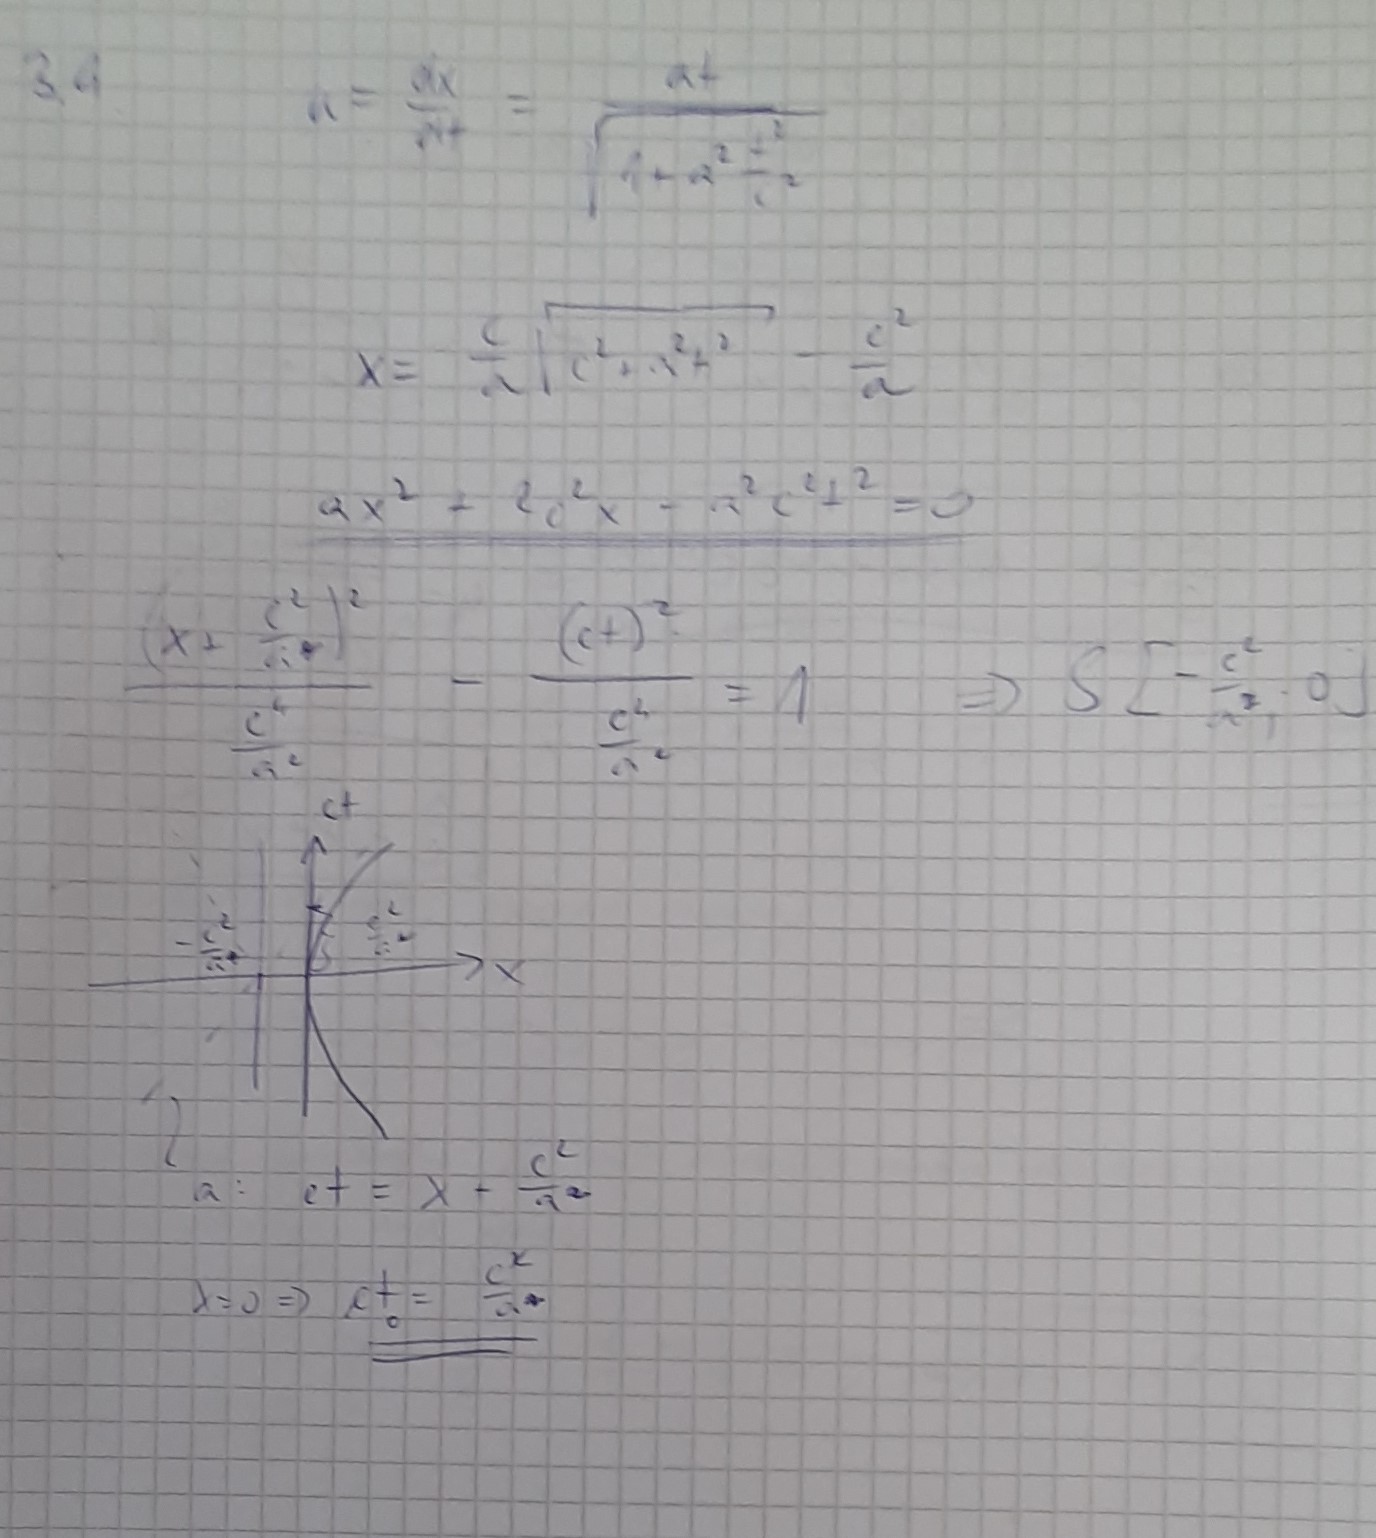 3.4 u = dx/dt = at / √(1 + a² t²/c²)
x = c/a √(c² + a²t²) - c²/a
ax² + 2c²x - a²c²t² = 0
(x + c²/a)² / (c⁴/a²) - (ct)² / (c⁴/a²) = 1 ⇒ S [-c²/a, 0]
ct
-c²/a c²/a
x
a: ct = x + c²/a
x=0 ⇒ ct₀ = c²/a